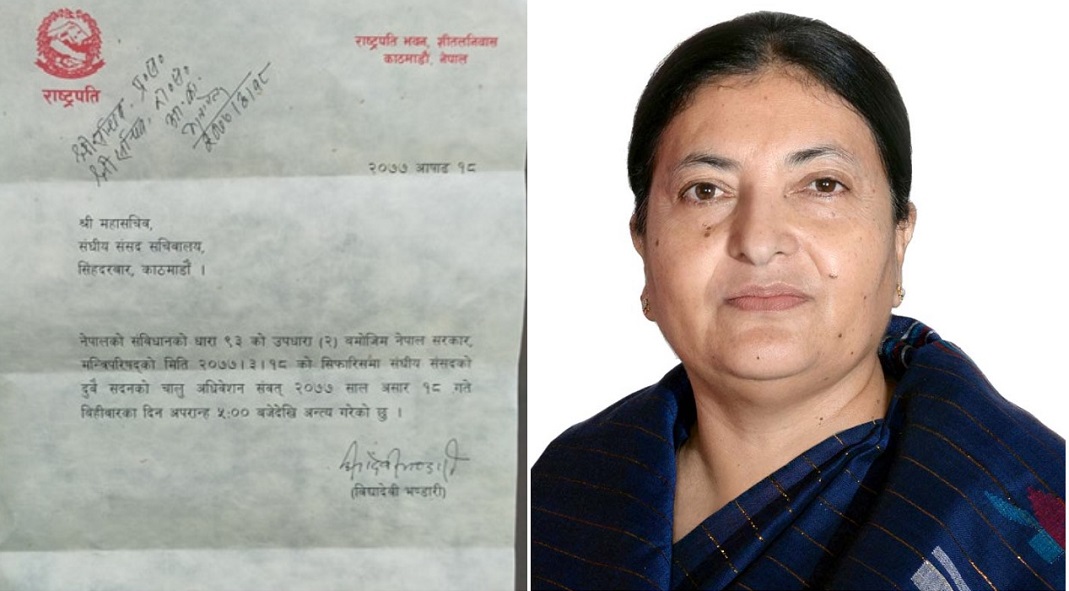 राष्ट्रपति
राष्ट्रपति भवन, शीतलनिवास
काठमाडौं, नेपाल
२०७७।३।१८
२०७७ आषाढ १८
श्री महासचिव,
संघीय संसद सचिवालय,
सिंहदरबार, काठमाडौं ।
नेपालको संविधानको धारा ९३ को उपधारा (२) बमोजिम नेपाल सरकार,
मन्त्रिपरिषद्को मिति २०७७।३।१८ को सिफारिसमा संघीय संसदको
दुबै सदनको चालु अधिवेशन संवत् २०७७ साल असार १८ गते
बिहीबारका दिन अपरान्ह ५:०० बजेदेखि अन्त्य गरेको छु ।
(विद्यादेवी भण्डारी)